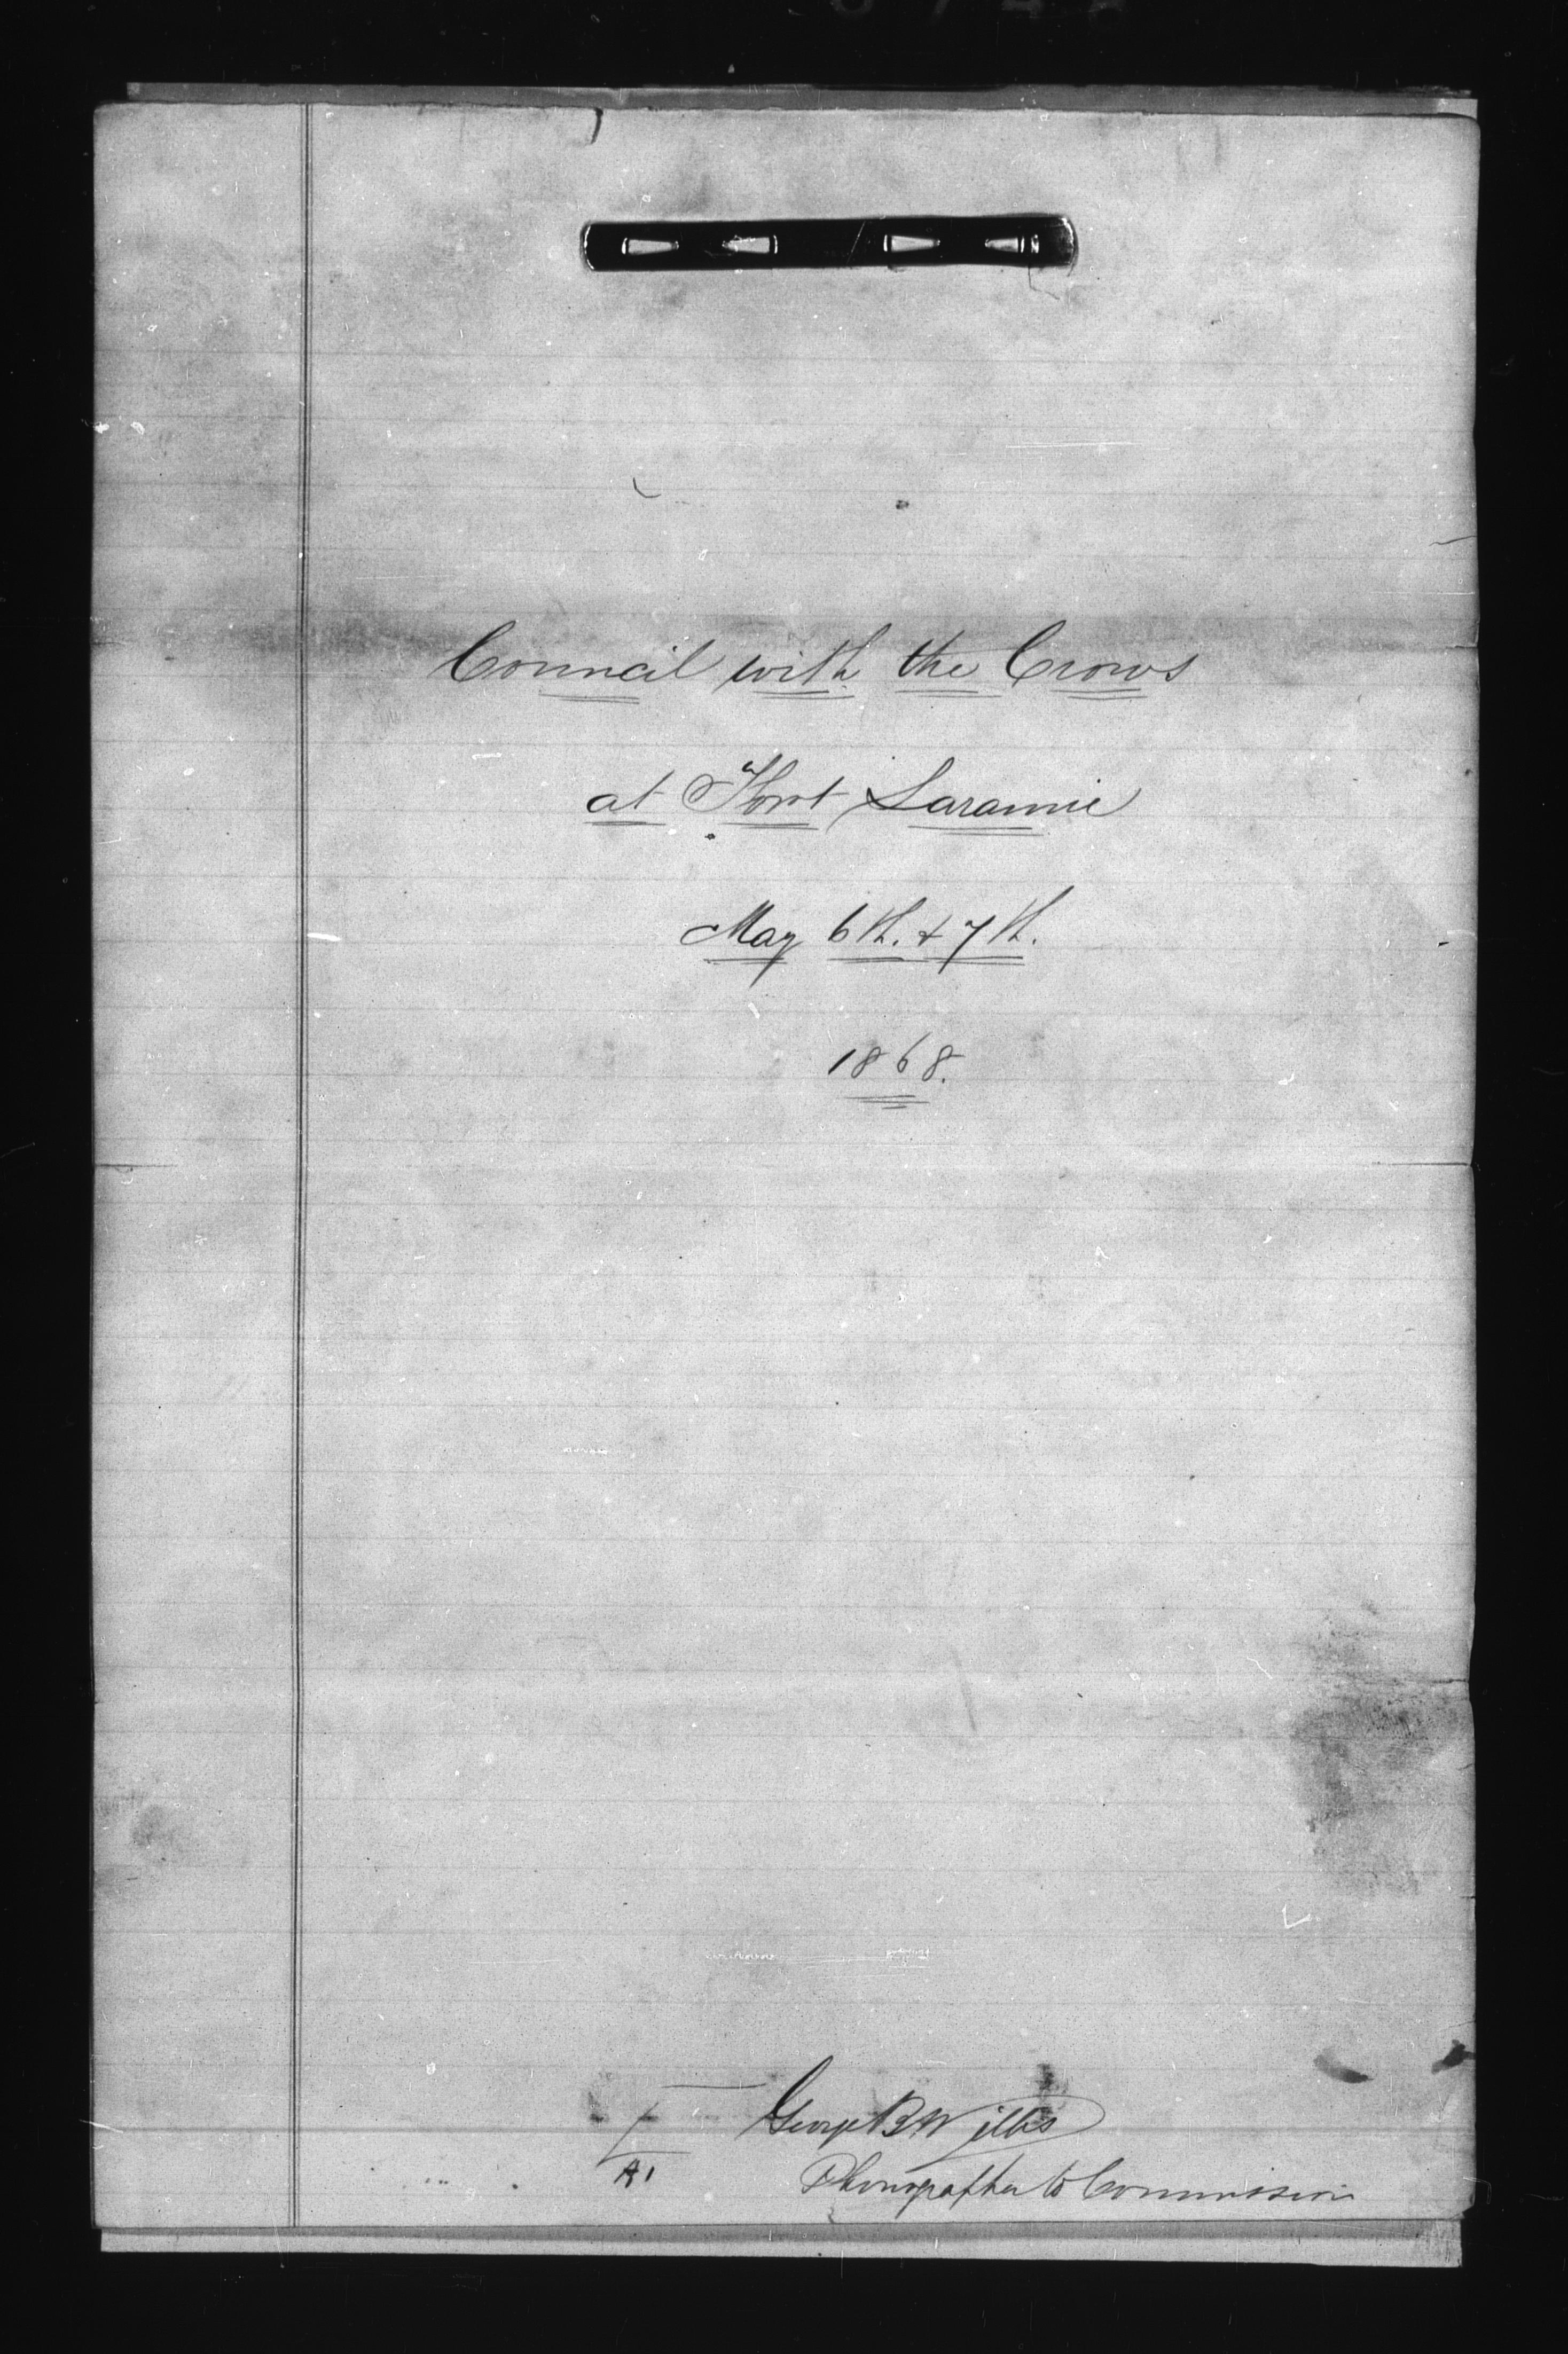 Council with the Crows
at Fort Laramie
May 6th. & 7th.
1868.
George B Willis
Phonographer to Commission
A1